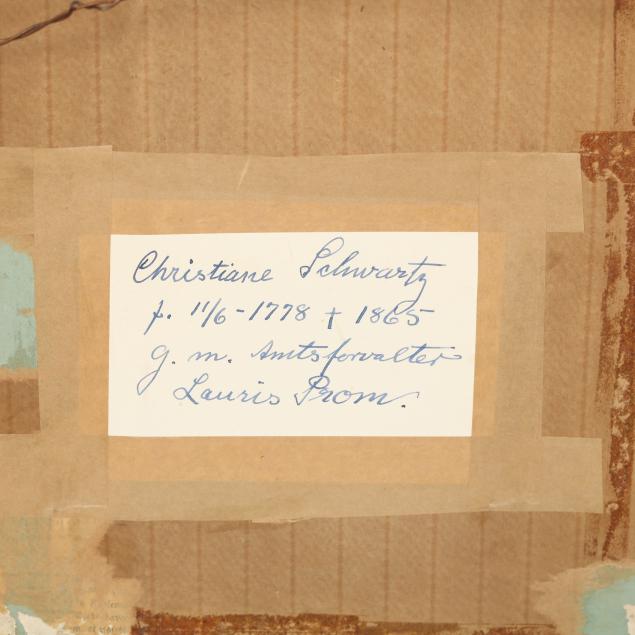 Christiane Schwartz
f. 11/6-1778 † 1865
g. m. Amtsforvalter
Lauris Prom.